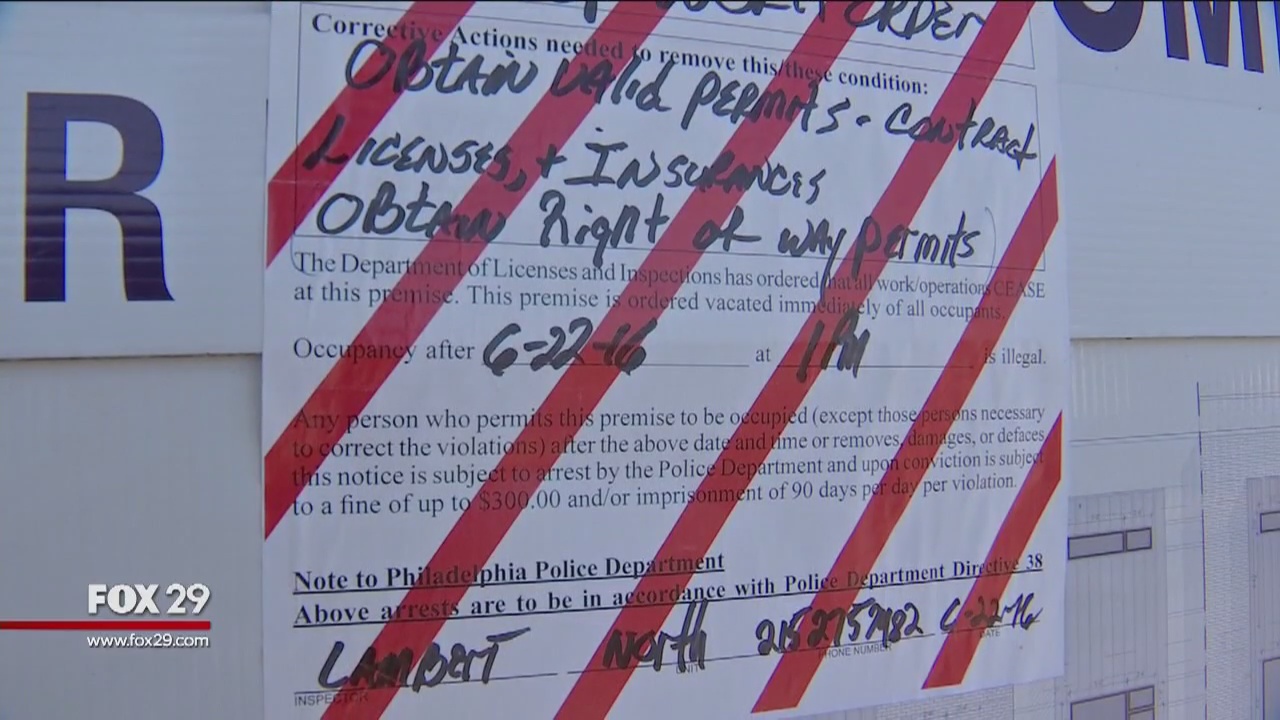 ORDER
Corrective Actions needed to remove this/these condition:
OBtAIN VAlid PERMitS - CONtRAct
LICENSES, + INSURANCES
OBtAIN Right of WAy PERMitS
The Department of Licenses and Inspections has ordered that all work/operations CEASE
at this premise. This premise is ordered vacated immediately of all occupants.
Occupancy after 6-22-16 at 1PM is illegal.
Any person who permits this premise to be occupied (except those persons necessary
to correct the violations) after the above date and time or removes, damages, or defaces
this notice is subject to arrest by the Police Department and upon conviction is subject
to a fine of up to $300.00 and/or imprisonment of 90 days per day per violation.
Note to Philadelphia Police Department
Above arrests are to be in accordance with Police Department Directive 38
LAMBERT North 215 275 7982 6-22-16
INSPECTOR UNIT PHONE NUMBER DATE
R
OM
FOX 29
www.fox29.com